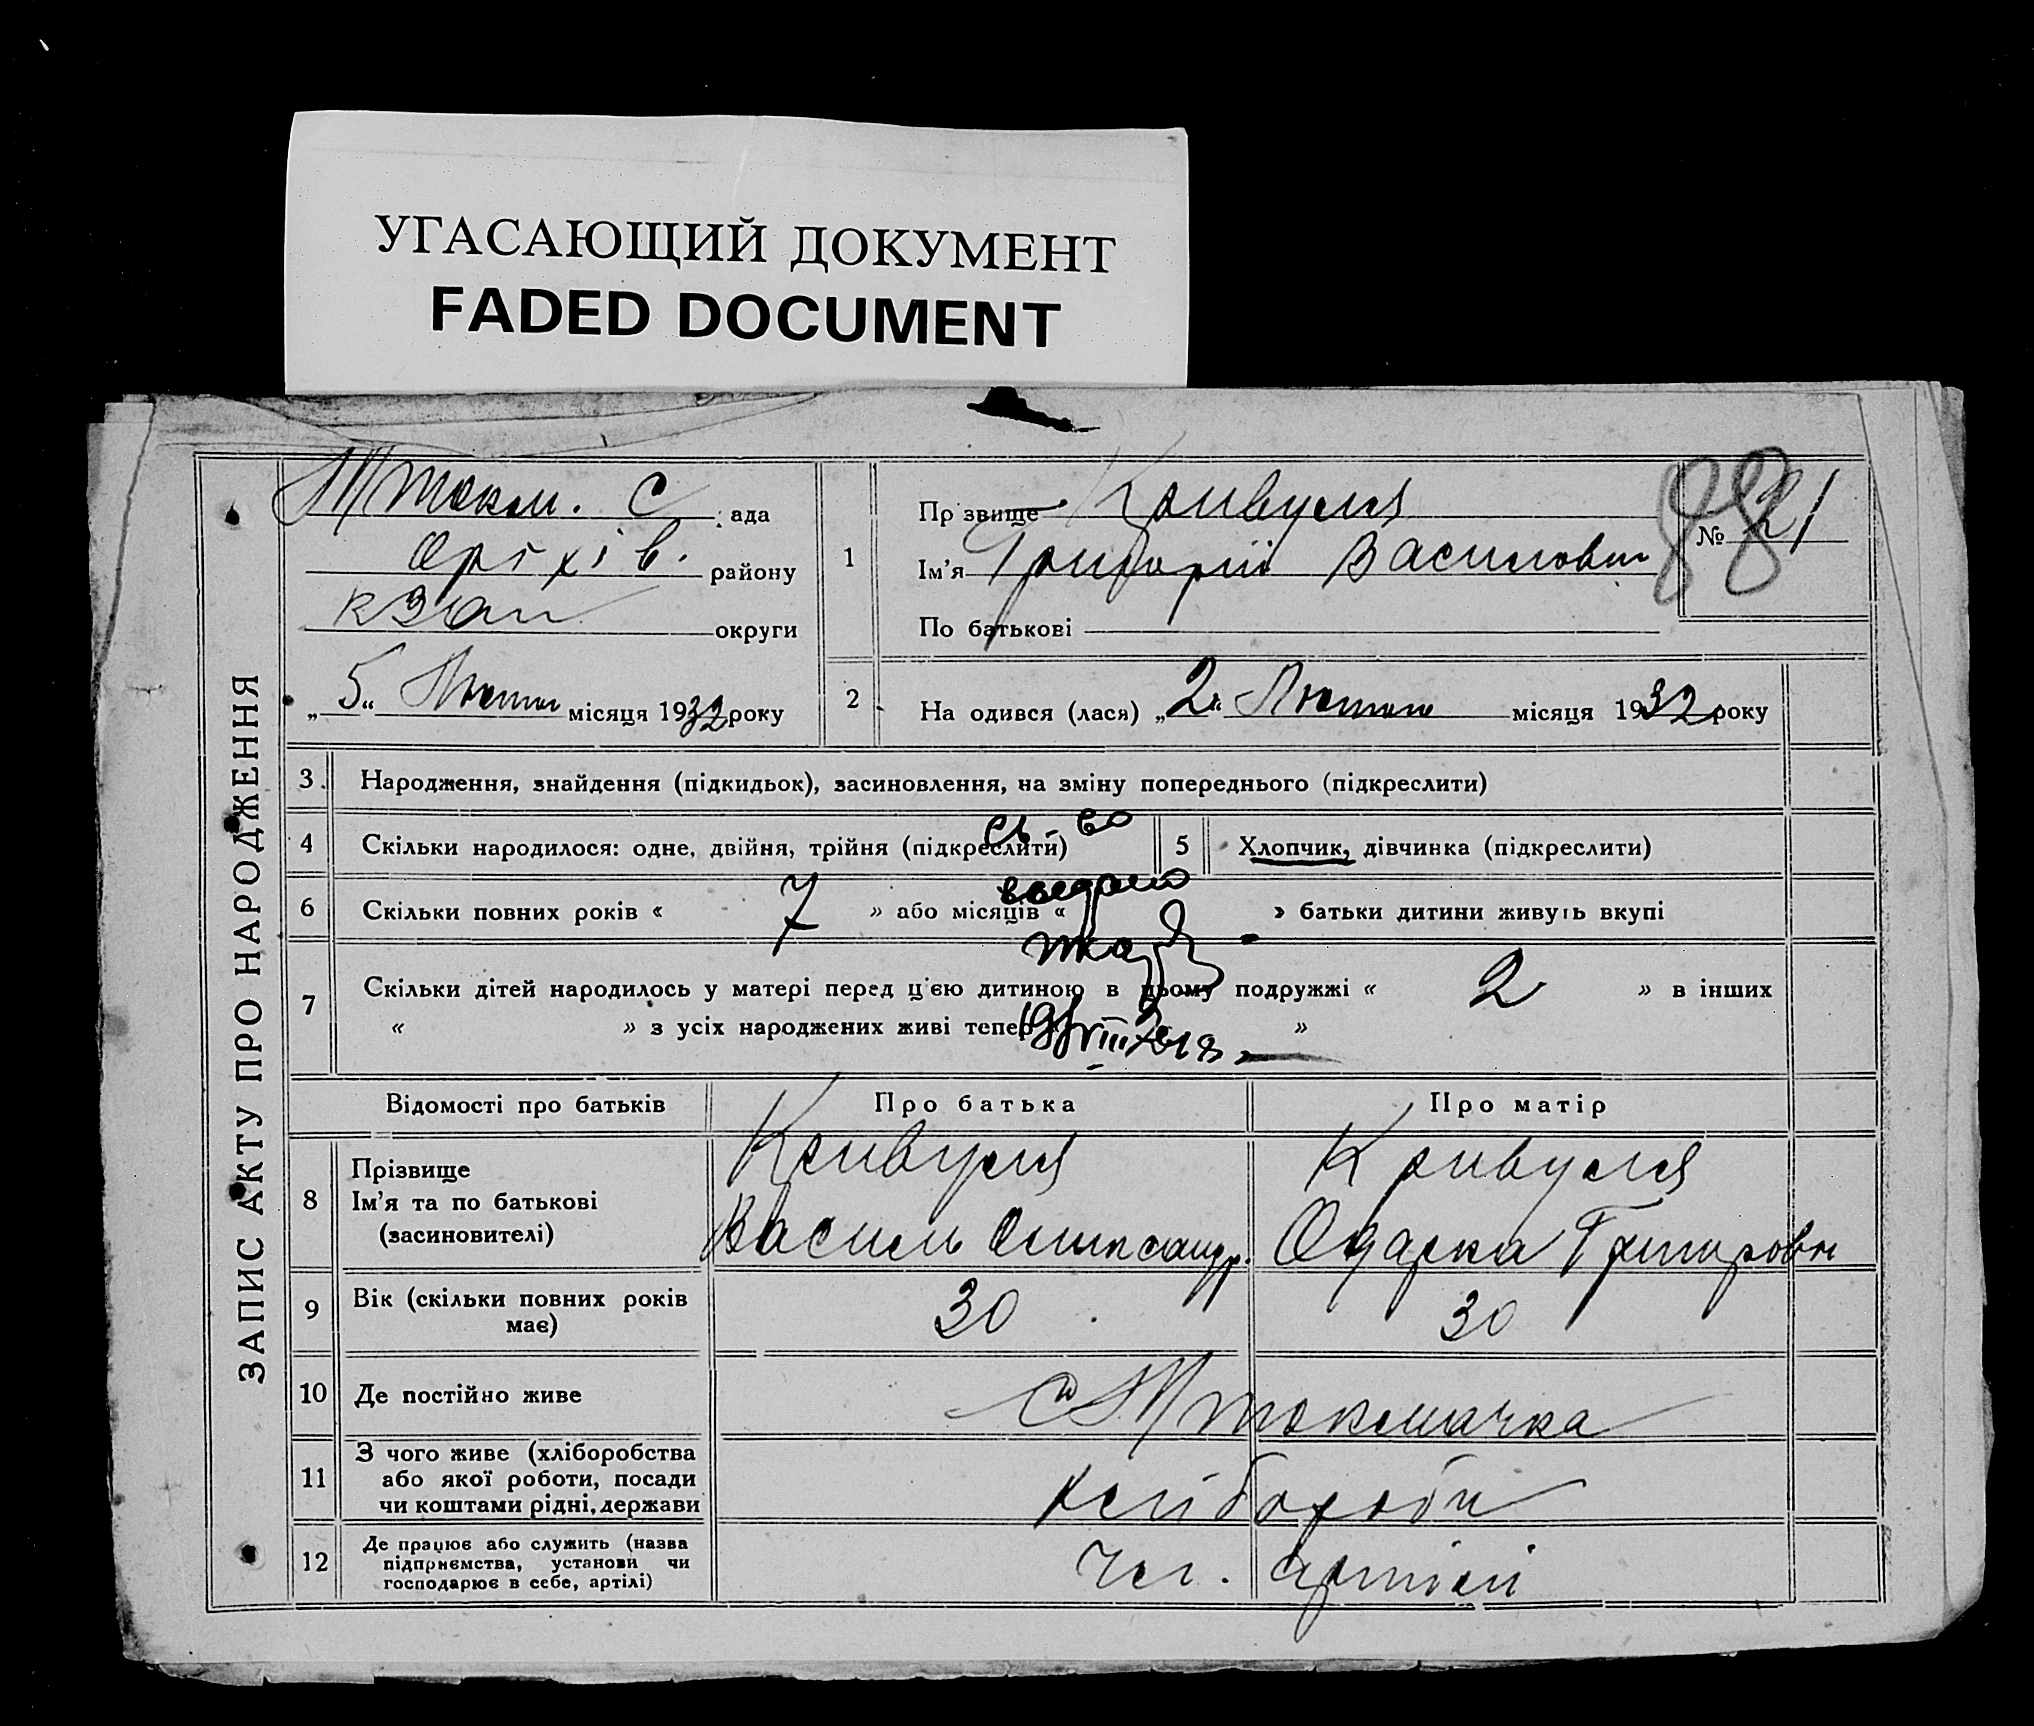 УГАСАЮЩИЙ ДОКУМЕНТ
FADED DOCUMENT
ЗАПИС АКТУ ПРО НАРОДЖЕННЯ
МТокм. С ада
Оріхів. району
округи
„5“ Лютого місяця 1932 року
1
Пр звище Кривуля
Ім'я Григорій Васильович
По батькові
№ 21
88
2
На одився (лася) „2“ Лютого місяця 1932 року
3. Народження, знайдення (підкидьок), засиновлення, на зміну попереднього (підкреслити)
4 Скільки народилося: одне, двійня, трійня (підкреслити)
5 Хлопчик, дівчинка (підкреслити)
св-во
6 Скільки повних років « 7 » або місяців « » батьки дитини живуть вкупі
выдано
7 Скільки дітей народилось у матері перед ц'єю дитиною в цьому подружжі « 2 » в інших
« » з усіх народжених живі тепер 2 »
Відомості про батьків
Про батька
Про матір
8
Прізвище
Ім'я та по батькові
(засиновителі)
Кривуля
Василь Олександр.
Кривуля
Одарка Григоровн
9
Вік (скільки повних років
має)
30
30
10 Де постійно живе
с МТокмачка
11
З чого живе (хліборобства
або якої роботи, посади
чи коштами рідні, держави
хлібороби
12
Де працює або служить (назва
підприємства, установи чи
господарює в себе, артілі)
Чл. артілі